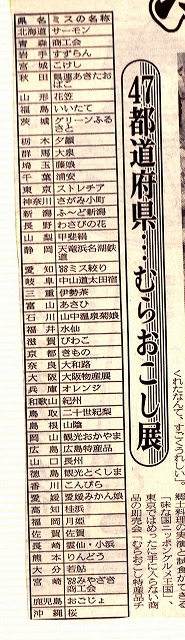 47都道府県…むらおこし展
県名 ミスの名称
北海道 サーモン
青森 商工会
岩手 すずらん
宮城 こけし
秋田 県連あきたおばこ
山形 花笠
福島 いいたて
茨城 グリーンふるさと
栃木 夕顔
群馬 大泉
埼玉 藤娘
千葉 浦安
東京 ストレチア
神奈川 さがみ小町
新潟 ふ〜ど新潟
長野 わさびの花
山梨 甲斐絹
静岡 天竜浜名湖鉄道
愛知 '88ミス絞り
岐阜 中山道太田宿
三重 伊勢茶
富山 あさひ
石川 山中温泉菊娘
福井 水仙
滋賀 びわこ
京都 きもの
奈良 大和路
大阪 大阪物産展
兵庫 オレンジ
和歌山 紀州
鳥取 二十世紀梨
島根 山陰
岡山 観光おかやま
広島 広島特産品
山口 長州
徳島 観光とくしま
香川 こんぴら
愛媛 愛媛みかん娘
高知 桂浜
福岡 月姫
佐賀 佐賀
長崎 壱岐・小浜
熊本 りんどう
大分 若鮎
宮崎 '88みやざき商工会
鹿児島 おごじょ
沖縄 桜
くれたなんて、すごくうれしい」。
郷土料理の実演と試食ができる
「味な国ニッポングルメ王国」、
東京ではめったに手に入らない商
品の即売会「むらおこし特産品チ